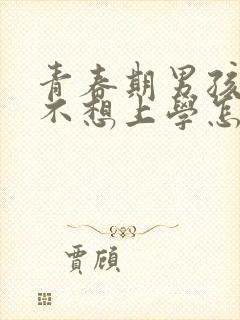 青春期男孩
不想上學怎
賈頎